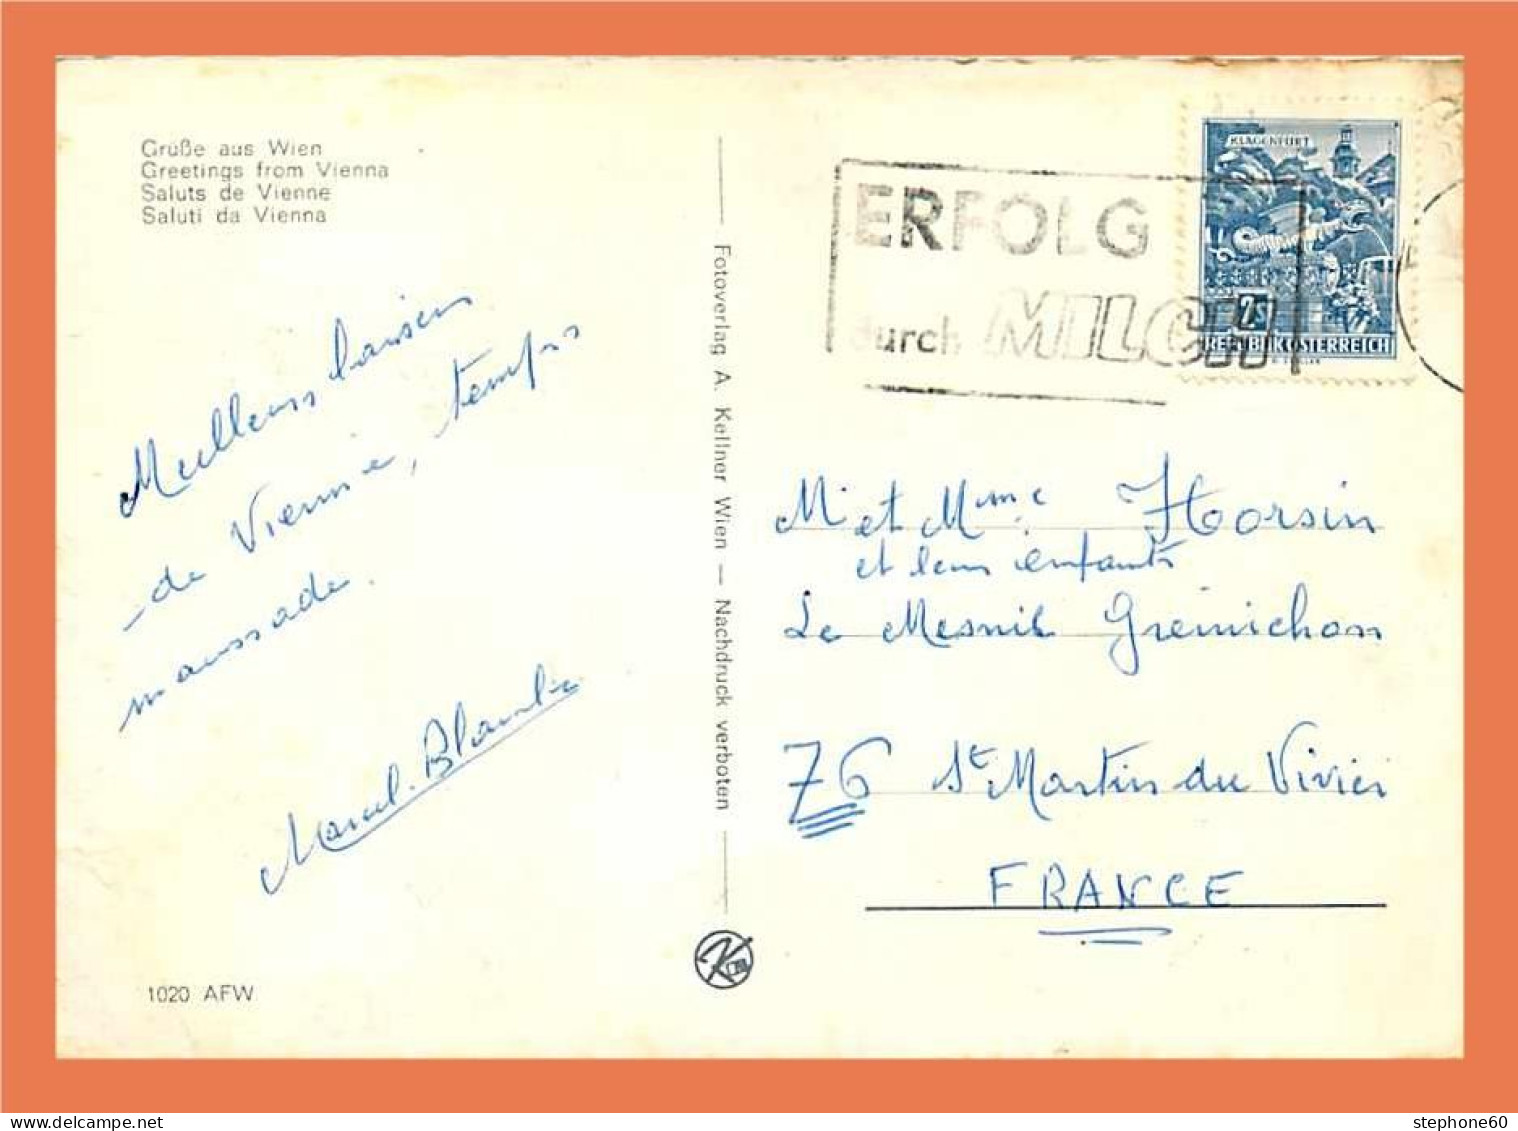 Grüße aus Wien
Greetings from Vienna
Saluts de Vienne
Saluti da Vienna
Meilleurs baisers
de Vienne, temps
maussade.
Marcel
1020 AFW
Fotoverlag A. Kellner Wien — Nachdruck verboten
ERFOLG
durch MILCH
KLAGENFURT
2S
REPUBLIK ÖSTERREICH
Mr et Mme Horsin
et leurs enfants
Le Mesnil Grémichon
76 St Martin du Vivier
FRANCE
stephone60